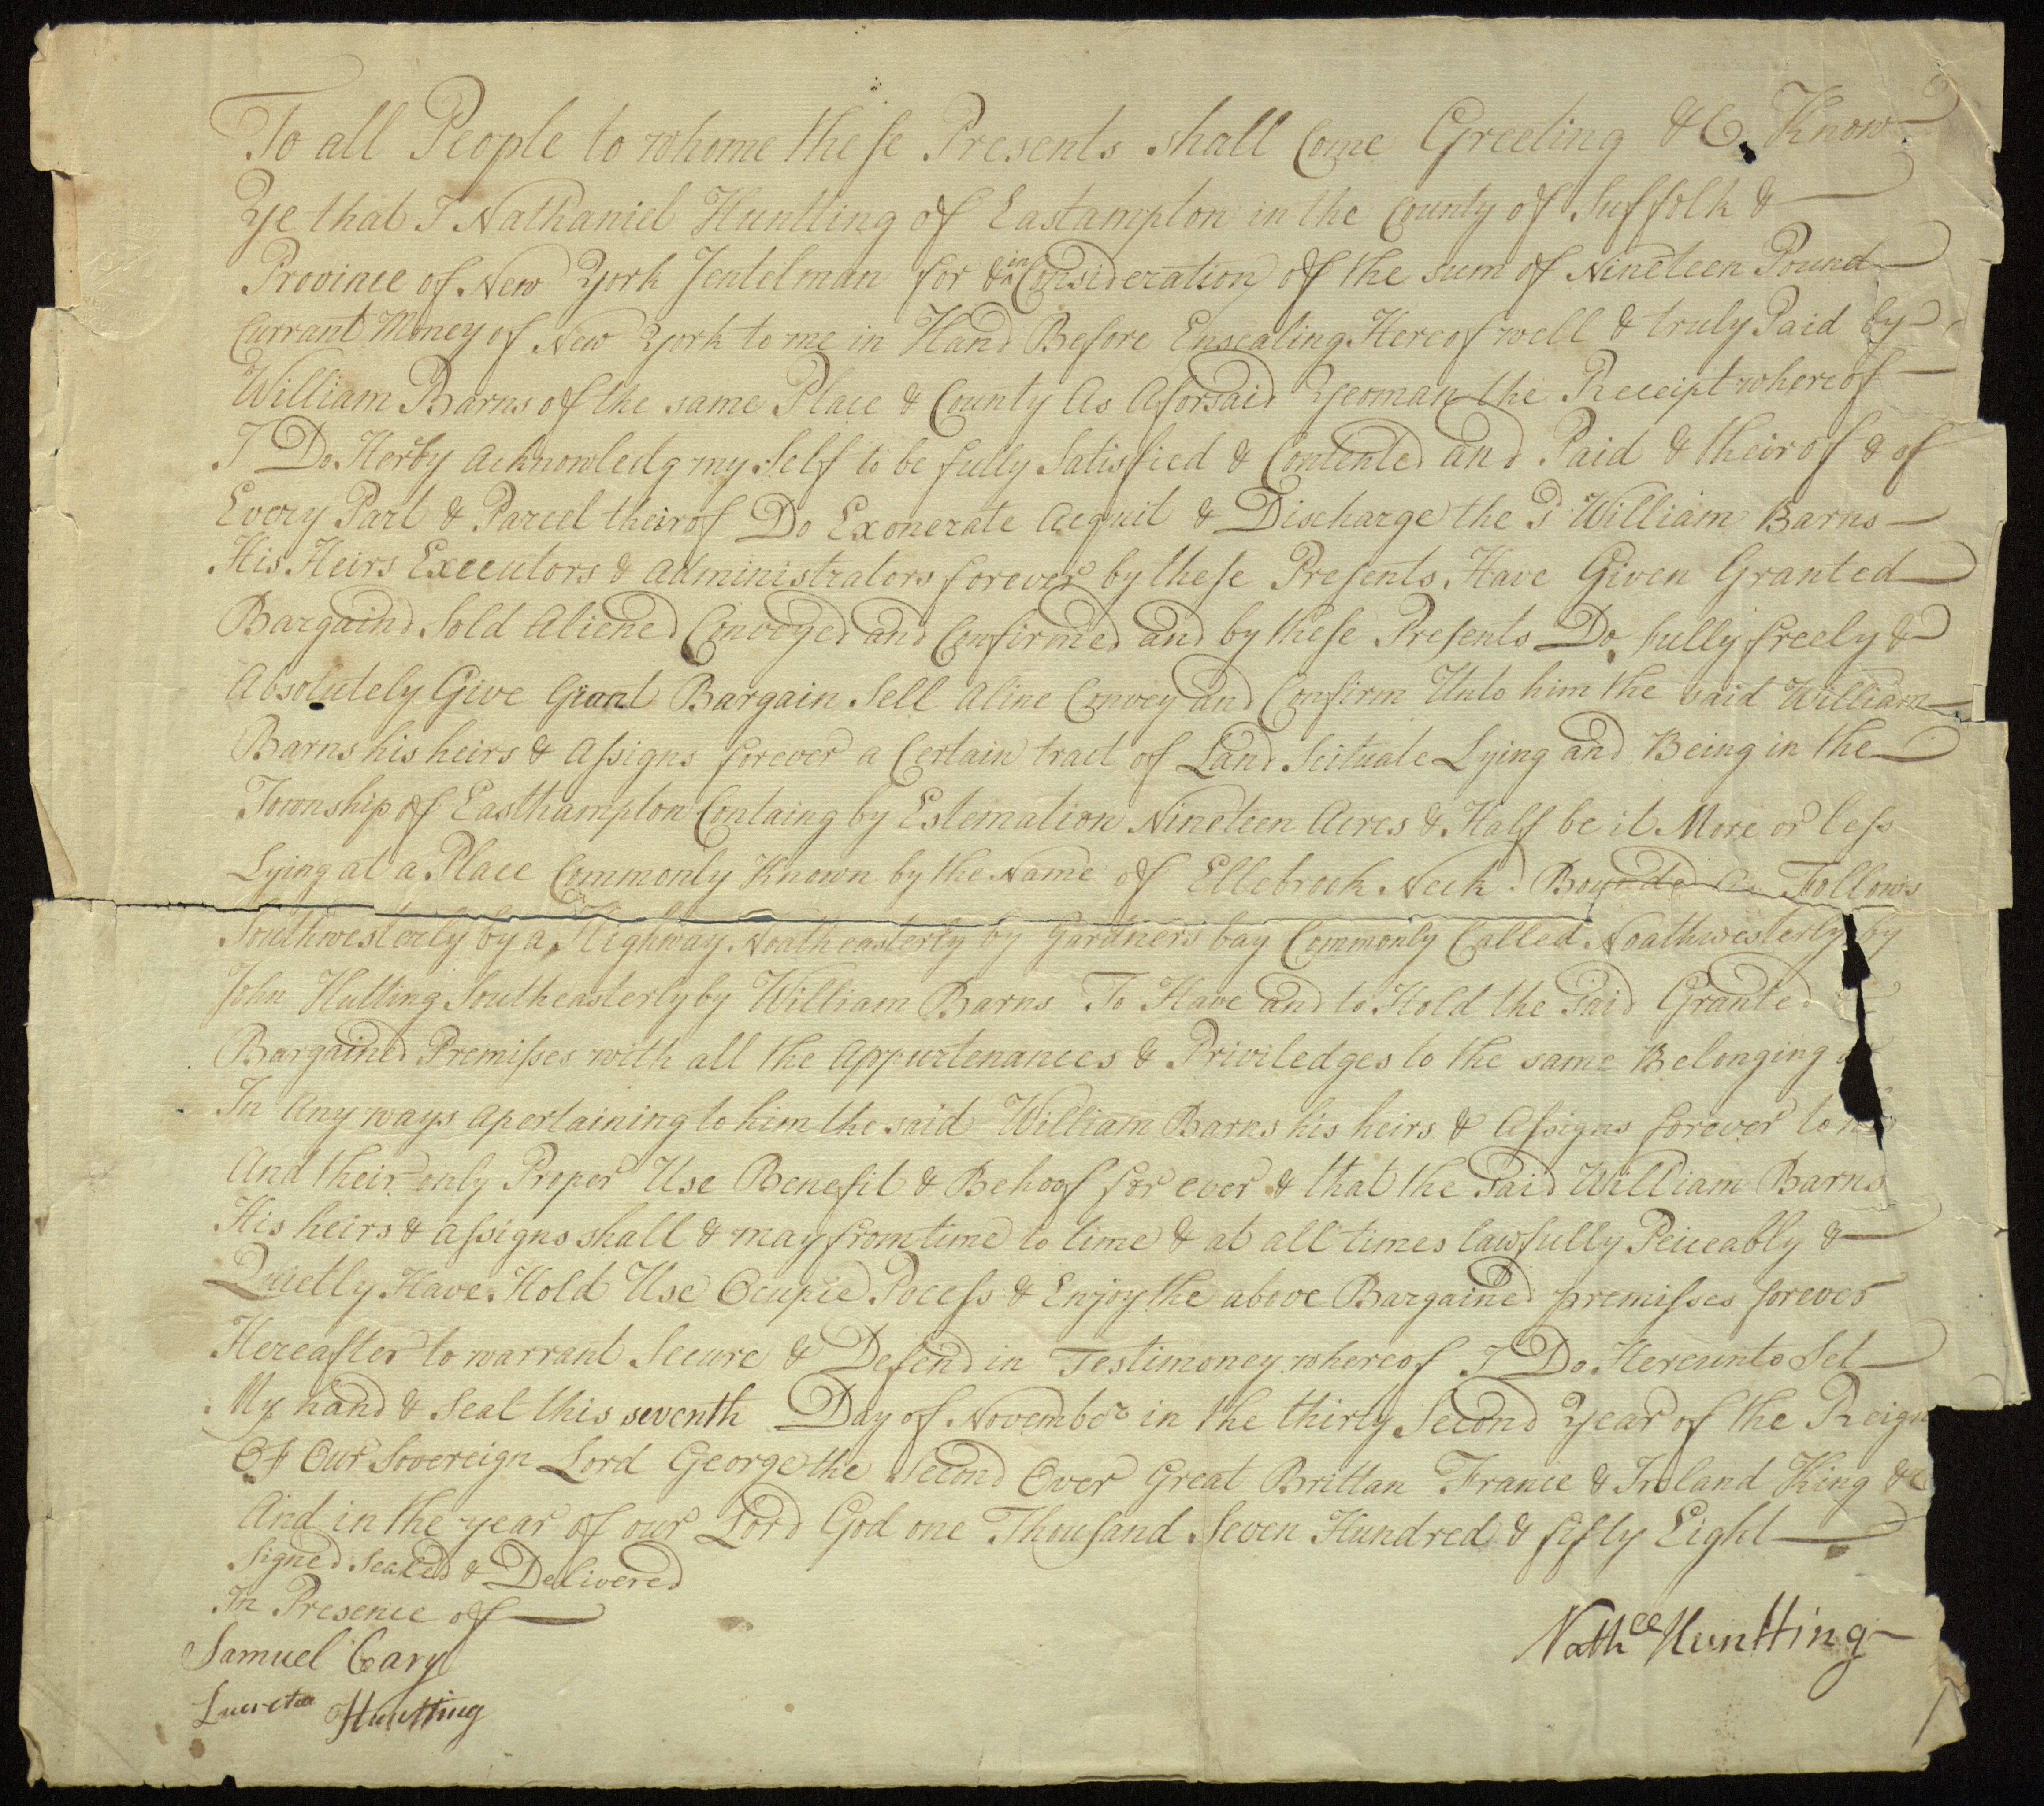 To all People to whome these Presents shall Come Greeting &C. Know
Ye that I Nathaniel Huntting of Eastampton in the County of Suffolk &
Province of New York Jentelman for & in Consideration of the sum of Nineteen Pound
Currant Money of New York to me in Hand Before Ensealing Hereof well & truly Paid by
William Barns of the same Place & County As Aforsaid Yeoman the Receipt whereof
I Do Herby Acknowledg my Self to be fully Satisfied & Contented and Paid & theirof & of
Every Part & Parcel theirof Do Exonerate Acquit & Discharge the Sd William Barns
His Heirs Executors & Administrators forever by these Presents Have Given Granted
Bargaind Sold Aliened Conveyed and Confirmed and by these Presents Do fully freely &
Absolutely Give Grant Bargain Sell Aline Convey and Confirm Unto him the said William
Barns his heirs & Assigns forever a Certain tract of Land Scituate Lying and Being in the
Township of Easthampton Containg by Estemation Nineteen Acres & Half be it More or less
Lying at a Place Commonly Known by the Name of Ellebrook Neck Bounded As Follows
Southwesterly by a Highway Noatheasterly by Gardners bay Commonly Called Noathwesterly by
John Hutting Southeasterly by William Barns To Have and to Hold the said Granted
Bargained Premisses with all the Appurtenances & Priviledges to the same Belonging
In Any ways Apertaining to him the said William Barns his heirs & Assigns forever to
And their only Proper Use Benefit & Behoof for ever & that the said William Barns
His heirs & Assigns shall & may from time to time & at all times lawfully Peiceably &
Quietly Have Hold Use Ocupie Pocess & Enjoy the above Bargained premisses forever
Hereafter to warrant Secure & Defend in Testimoney whereof I Do Hereunto Set
My hand & Seal this seventh Day of November in the thirty Second Year of the Reign
Of Our Sovereign Lord George the Second Over Great Brittan France & Ireland King &c
And in the year of our Lord God one Thousand Seven Hundred & fifty Eight
Signed Sealed & Delivered
In Presence of
Samuel Cary
Nathll Huntting
Lucretia Huntting